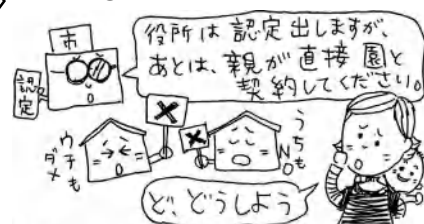 市
認定
役所は認定出しますが、
あとは、親が直接園と
契約してください。
ウチも
ダメ
うちも
NO
ど、どうしよう